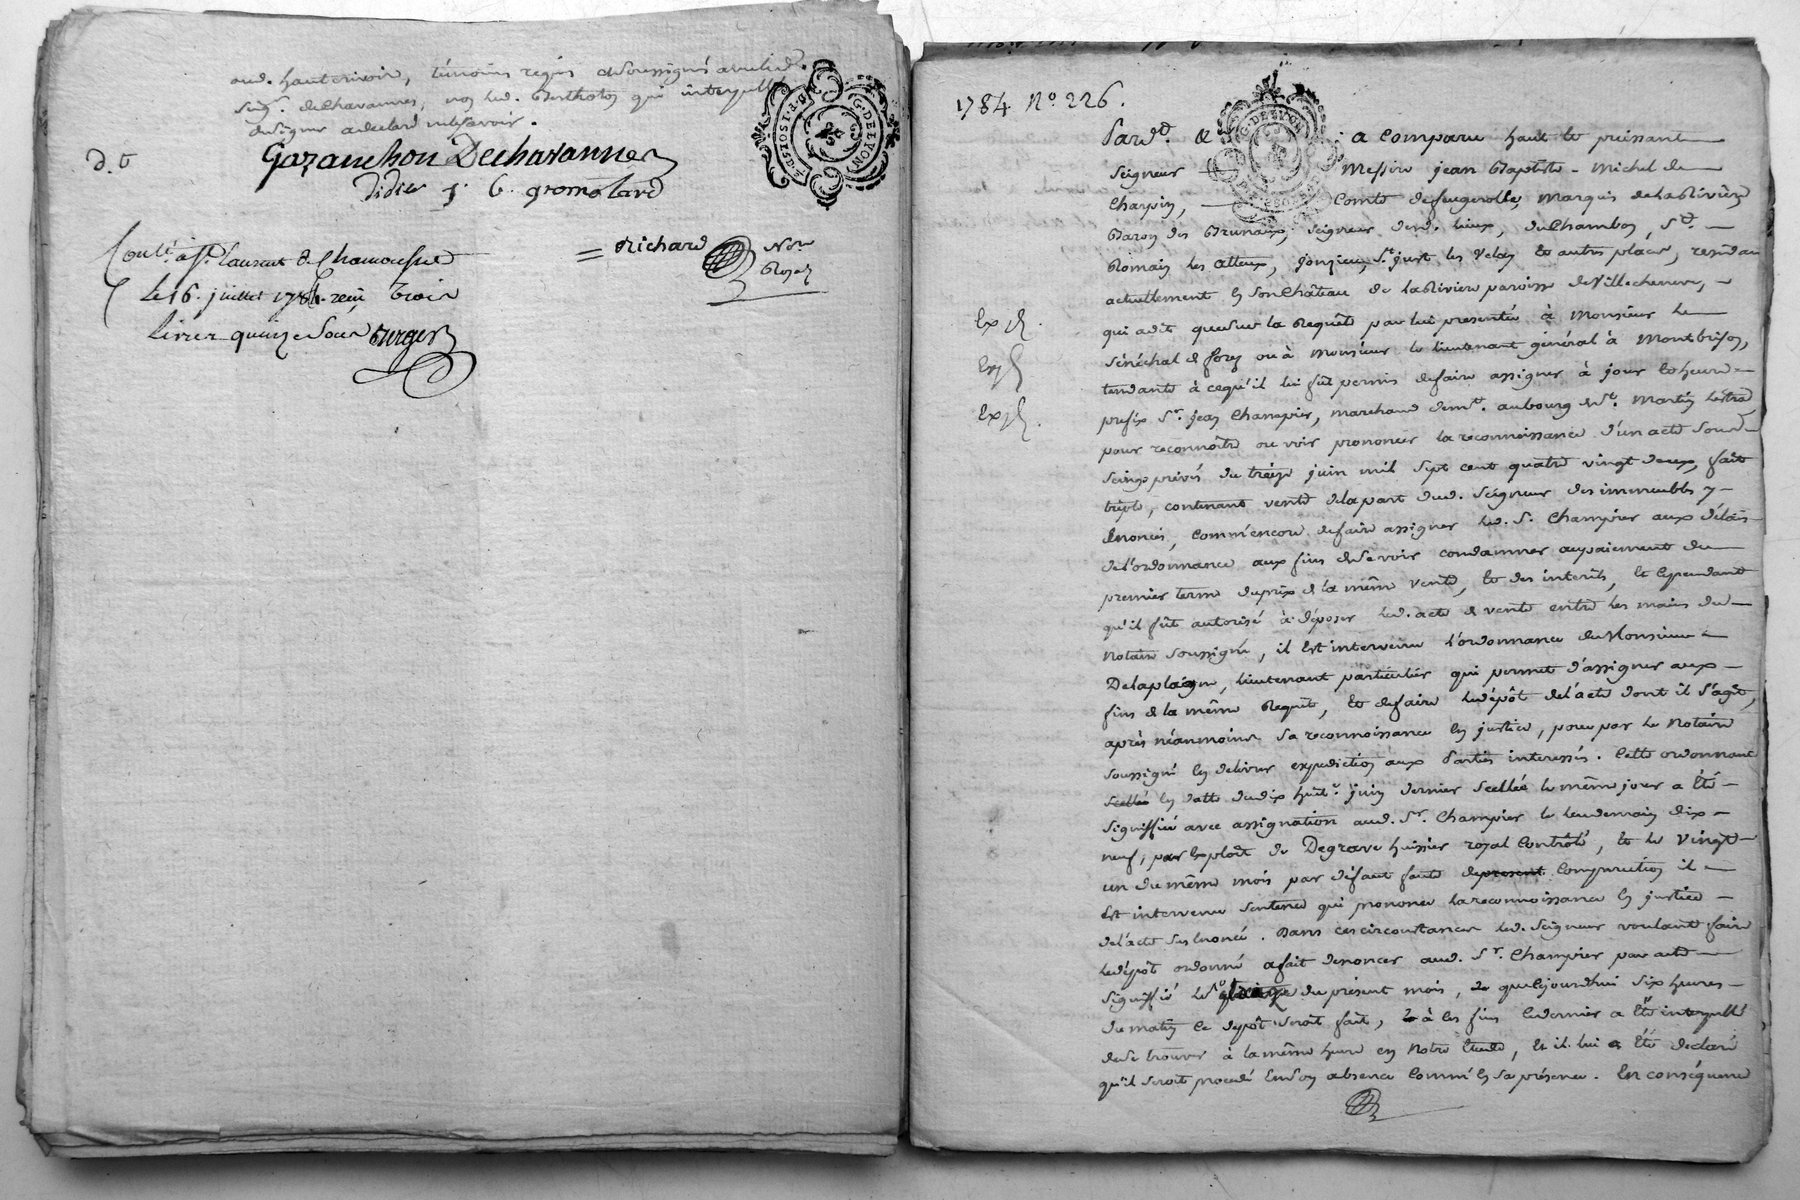 aud. hauterivoir, témoins requis et soussignés avec led.
Seigr. de Chavannes, non led. Bertholon qui interpellé
de signer a declaré ne le savoir.
d. t
Gazanchon Dechavannes
Didier J. G. gromolard
= Richard Nore
Royal
Conlé. à St. Laurent de Chamousset
Le 16. juillet 1784. reçu trois
livres quinze sous Burger
G. DE LYON
DE P. 1 SOL 4 D.
1784 No. 226.
Pardt. &
G. DE LYON
a Comparu haut et puissant
Seigneur Messire jean Baptiste - Michel de
Charpin, Comte de feugerolles, Marquis de la Rivière
Baron des Bruneaux, seigneur desd. lieux, du Chambon, St.
Romain les atteux, jonzieu, St. just les Velay et autres places, residant
actuellement en son Château de la Riviere paroisse de Villechenève,
qui a dit que sur la Requête par lui presentée à Monsieur le
Sénéchal de forez ou à Monsieur le lieutenant général à Montbrison,
tendante à ce qu'il lui fût permis de faire assigner à jour et heure
prefix Sr. jean Champier, marchand demt. au bourg de St. Martin Lestra
pour reconnoître ou voir prononcer la reconnoissance d'un acte sous
seings privés du treize juin mil sept cent quatre vingt deux, fait
triple, contenant vente de la part dud. Seigneur des immeubles y
énoncés, comm'encore de faire assigner led. S. Champier aux délais
de l'ordonnance aux fins de se voir condamner au paiement du
premier terme du prix de la même vente, et des interêts, et cependant
qu'il fût autorisé à déposer led. acte de vente entre les mains du
Notaire soussigné, il est intervenu l'ordonnance de Monsieur
Delaplagne, lieutenant particulier qui permet d'assigner aux
fins de la même Requête, et de faire le dépôt de l'acte dont il s'agit,
après néanmoins sa reconnoissance en justice, pour par le Notaire
soussigné en delivrer expedition aux Parties interessés. Cette ordonnance
scellée en datte du dix huite. juin dernier scellée le même jour a été
signiffiée avec assignation aud. Sr. Champier le lendemain dix
neuf, par Exploit de Degrave huissier royal Contrôlé, et le vingt
un du même mois par défaut faute de present Comparution il
est intervenu sentence qui prononce la reconnoissance en justice
de l'acte sus énoncé. Dans ces circonstances led. Seigneur voulant faire
le dépôt ordonné a fait denoncer aud. Sr. Champier par acte
signiffié le du présent mois, que cejourdhui six heures
du matin ce depôt seroit fait, & à ces fins ce dernier a été interpellé
de se trouver à la même heure en Notre Etude, et il lui a été declaré
qu'il seroit procedé en son absence comm'en sa présence. En conséquence
Exp.
Exp.
Exp.